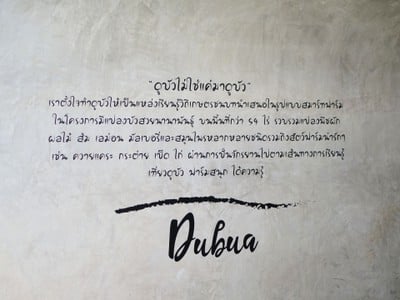 "ดูบัวไม่ใช่แค่มาดูบัว"
เราตั้งใจทำดูบัวให้เป็นแหล่งเรียนรู้วิถีเกษตรชนบทนำเสนอในรูปแบบสมาร์ทฟาร์ม
ในโครงการมีแปลงบัวสวยนานาพันธุ์ บนพื้นที่กว่า 59 ไร่ รวบรวมแปลงพืชผัก
ผลไม้ ส้ม เลม่อน มัลเบอรี่และสมุนไพรหลากหลายชนิดรวมถึงสัตว์ฟาร์มน่ารัก
เช่น ควายแคระ กระต่าย เป็ด ไก่ ผ่านการปั่นจักรยานไปตามเส้นทางการเรียนรู้
เที่ยวดูบัว ฟาร์มสนุก ได้ความรู้
Dubua